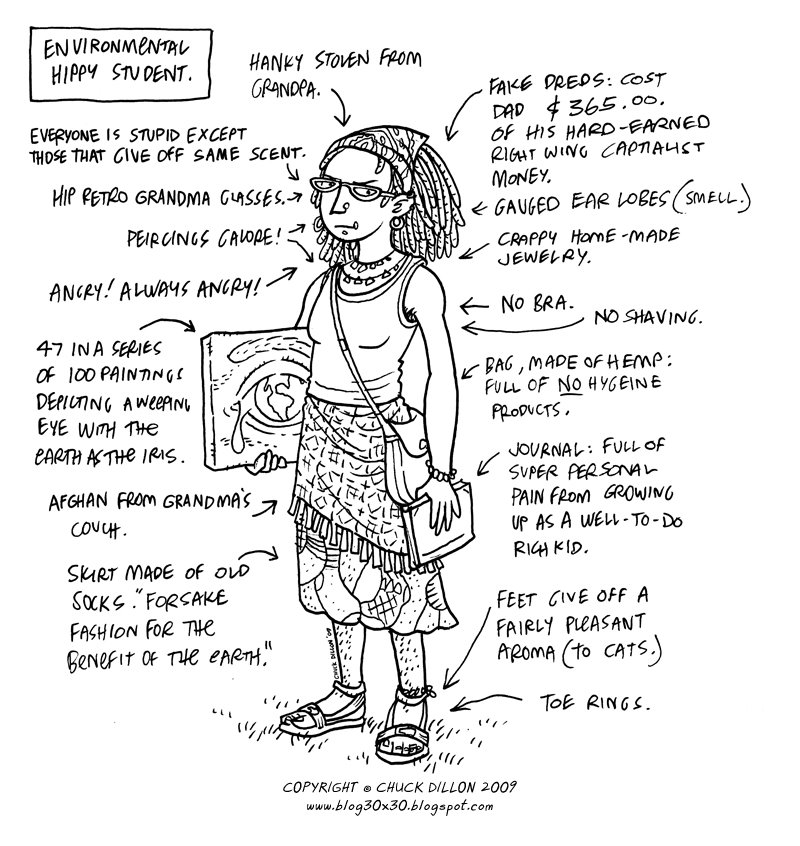 ENVIRONMENTAL
HIPPY STUDENT.
HANKY STOLEN FROM
GRANDPA.
FAKE DREDS: COST
DAD $365.00.
OF HIS HARD-EARNED
RIGHT WING CAPTIALIST
MONEY.
EVERYONE IS STUPID EXCEPT
THOSE THAT GIVE OFF SAME SCENT.
HIP RETRO GRANDMA GLASSES.
GAUGED EAR LOBES (SMELL.)
PEIRCINGS GALORE!
CRAPPY HOME-MADE
JEWELRY.
ANGRY! ALWAYS ANGRY!
NO BRA.
NO SHAVING.
47 IN A SERIES
OF 100 PAINTINGS
DEPICTING A WEEPING
EYE WITH THE
EARTH AS THE IRIS.
BAG, MADE OF HEMP:
FULL OF NO HYGEINE
PRODUCTS.
JOURNAL: FULL OF
SUPER PERSONAL
PAIN FROM GROWING
UP AS A WELL-TO-DO
RICH KID.
AFGHAN FROM GRANDMA'S
COUCH.
SKIRT MADE OF OLD
SOCKS. "FORSAKE
FASHION FOR THE
BENEFIT OF THE EARTH."
FEET GIVE OFF A
FAIRLY PLEASANT
AROMA (TO CATS.)
TOE RINGS.
CHUCK DILLON '09
COPYRIGHT © CHUCK DILLON 2009
www.blog30x30.blogspot.com